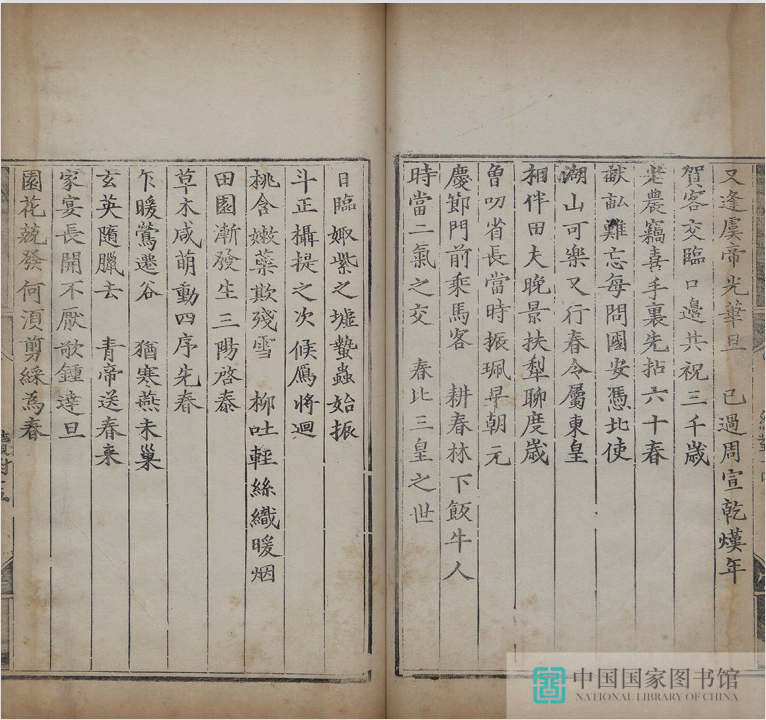 又逢虞帝光華旦　已過周宣乾熯年
賀客交臨口邊共祝三千歲
老農竊喜手裏先拈六十春
畎畝難忘每問國安憑比使
湖山可樂又行春令屬東皇
相伴田夫晚景扶犁聊度歲
曾叨省長當時振珮早朝元
慶節門前乘馬客　耕春林下飯牛人
時當二氣之交　春比三皇之世
日臨娵紫之墟蟄蟲始振
斗正攝提之次候鴈將迴
桃含嫩蘂欺殘雪　柳吐輕絲織暖烟
田園漸發生三陽啓泰
草木咸萌動四序先春
乍暖鶯遷谷　猶寒燕未巢
玄英隨臘去　青帝送春来
家宴長開不厭歌鍾達旦
園花兢發何湏剪綵為春
中国国家图书馆
NATIONAL LIBRARY OF CHINA